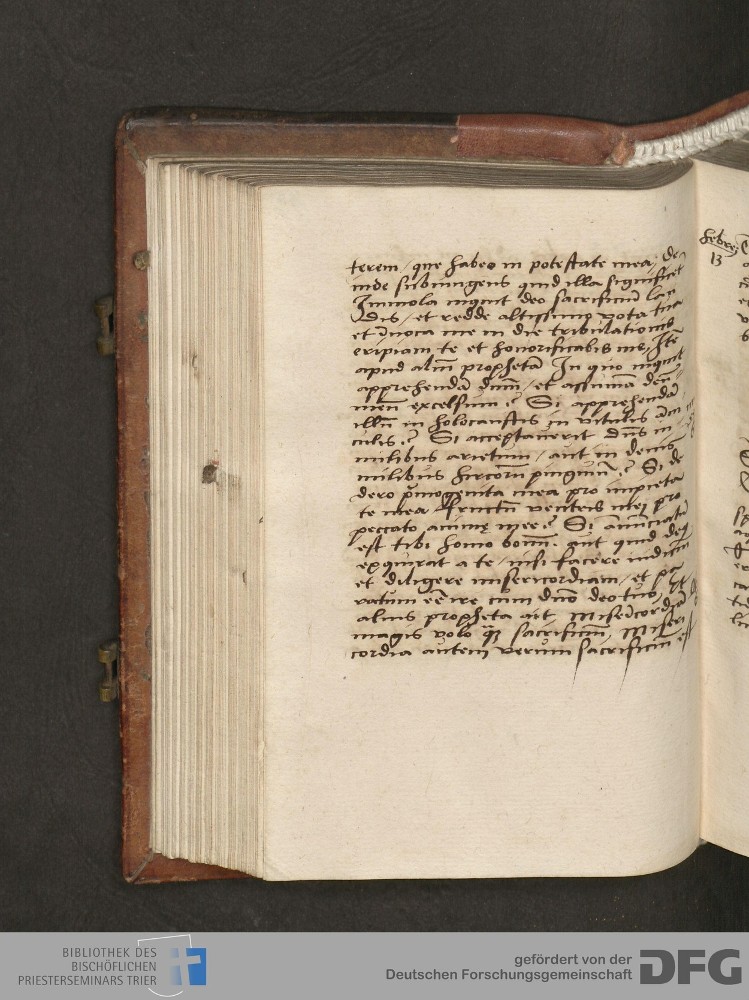 terem / que habeo in potestate mea, De
inde subiungens quid illa significet
Immola inquit deo sacrificiū lau
dis / et redde altissimo vota tua
et īuoca me in die tribulationis
eripiam te et honorificabis me, Itē
apud aliū prophetā In quo inquit
apprehendā dnm̄ / et assumā deū
meū excelsum? Si apprehendā
illū in holocaustis in vitulis
culis? Si acceptauerit dn̄s in
milibus arietum / aut in denis
milibus hircorū pinguiū? Si de
dero p̄mogenita mea pro impieta
te mea fructū ventris mei pro
peccato animę meę? Si annūciatū
est tibi homo bonū: aut quid deus
exquirat a te / nisi facere iudiciū
et diligere misericordiam / et pa
ratum eē ire cum dn̄o deo tuo, Et
alius propheta ait, Misericordiā
magis volo q̄ sacrificiū, Miseri
cordia autem verum sacrificiū est
hebre
13
BIBLIOTHEK DES
BISCHÖFLICHEN
PRIESTERSEMINARS TRIER
gefördert von der
Deutschen Forschungsgemeinschaft
DFG